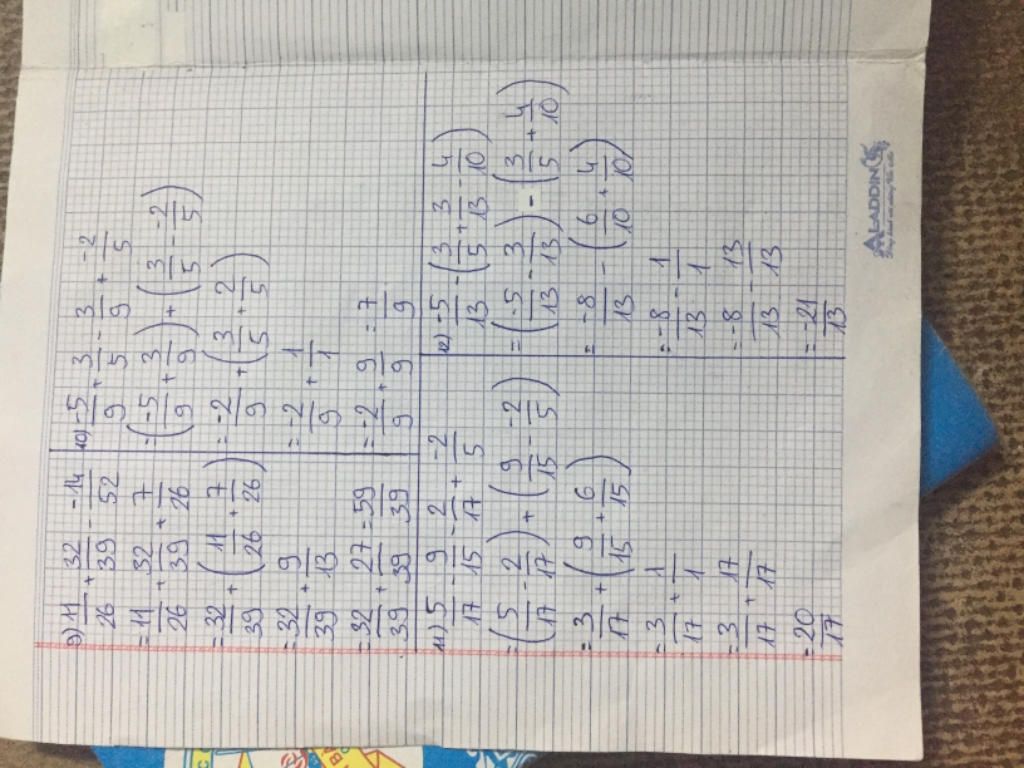 9) 11/26 + 32/39 - -14/52
= 11/26 + 32/39 + 7/26
= 32/39 + (11/26 + 7/26)
= 32/39 + 9/13
= 32/39 + 27/39 = 59/39
10) -5/9 + 3/5 - 3/9 + -2/5
= (-5/9 + 3/9) + (3/5 - -2/5)
= -2/9 + (3/5 + 2/5)
= -2/9 + 1/1
= -2/9 + 9/9 = 7/9
11) 5/17 - 9/15 - 2/17 + -2/5
= (5/17 - 2/17) + (9/15 - -2/5)
= 3/17 + (9/15 + 6/15)
= 3/17 + 1/1
= 3/17 + 17/17
= 20/17
12) -5/13 - (3/5 + 3/13 - 4/10)
= (-5/13 - 3/13) - (3/5 + 4/10)
= -8/13 - (6/10 + 4/10)
= -8/13 - 1/1
= -8/13 - 13/13
= -21/13
ALADDIN